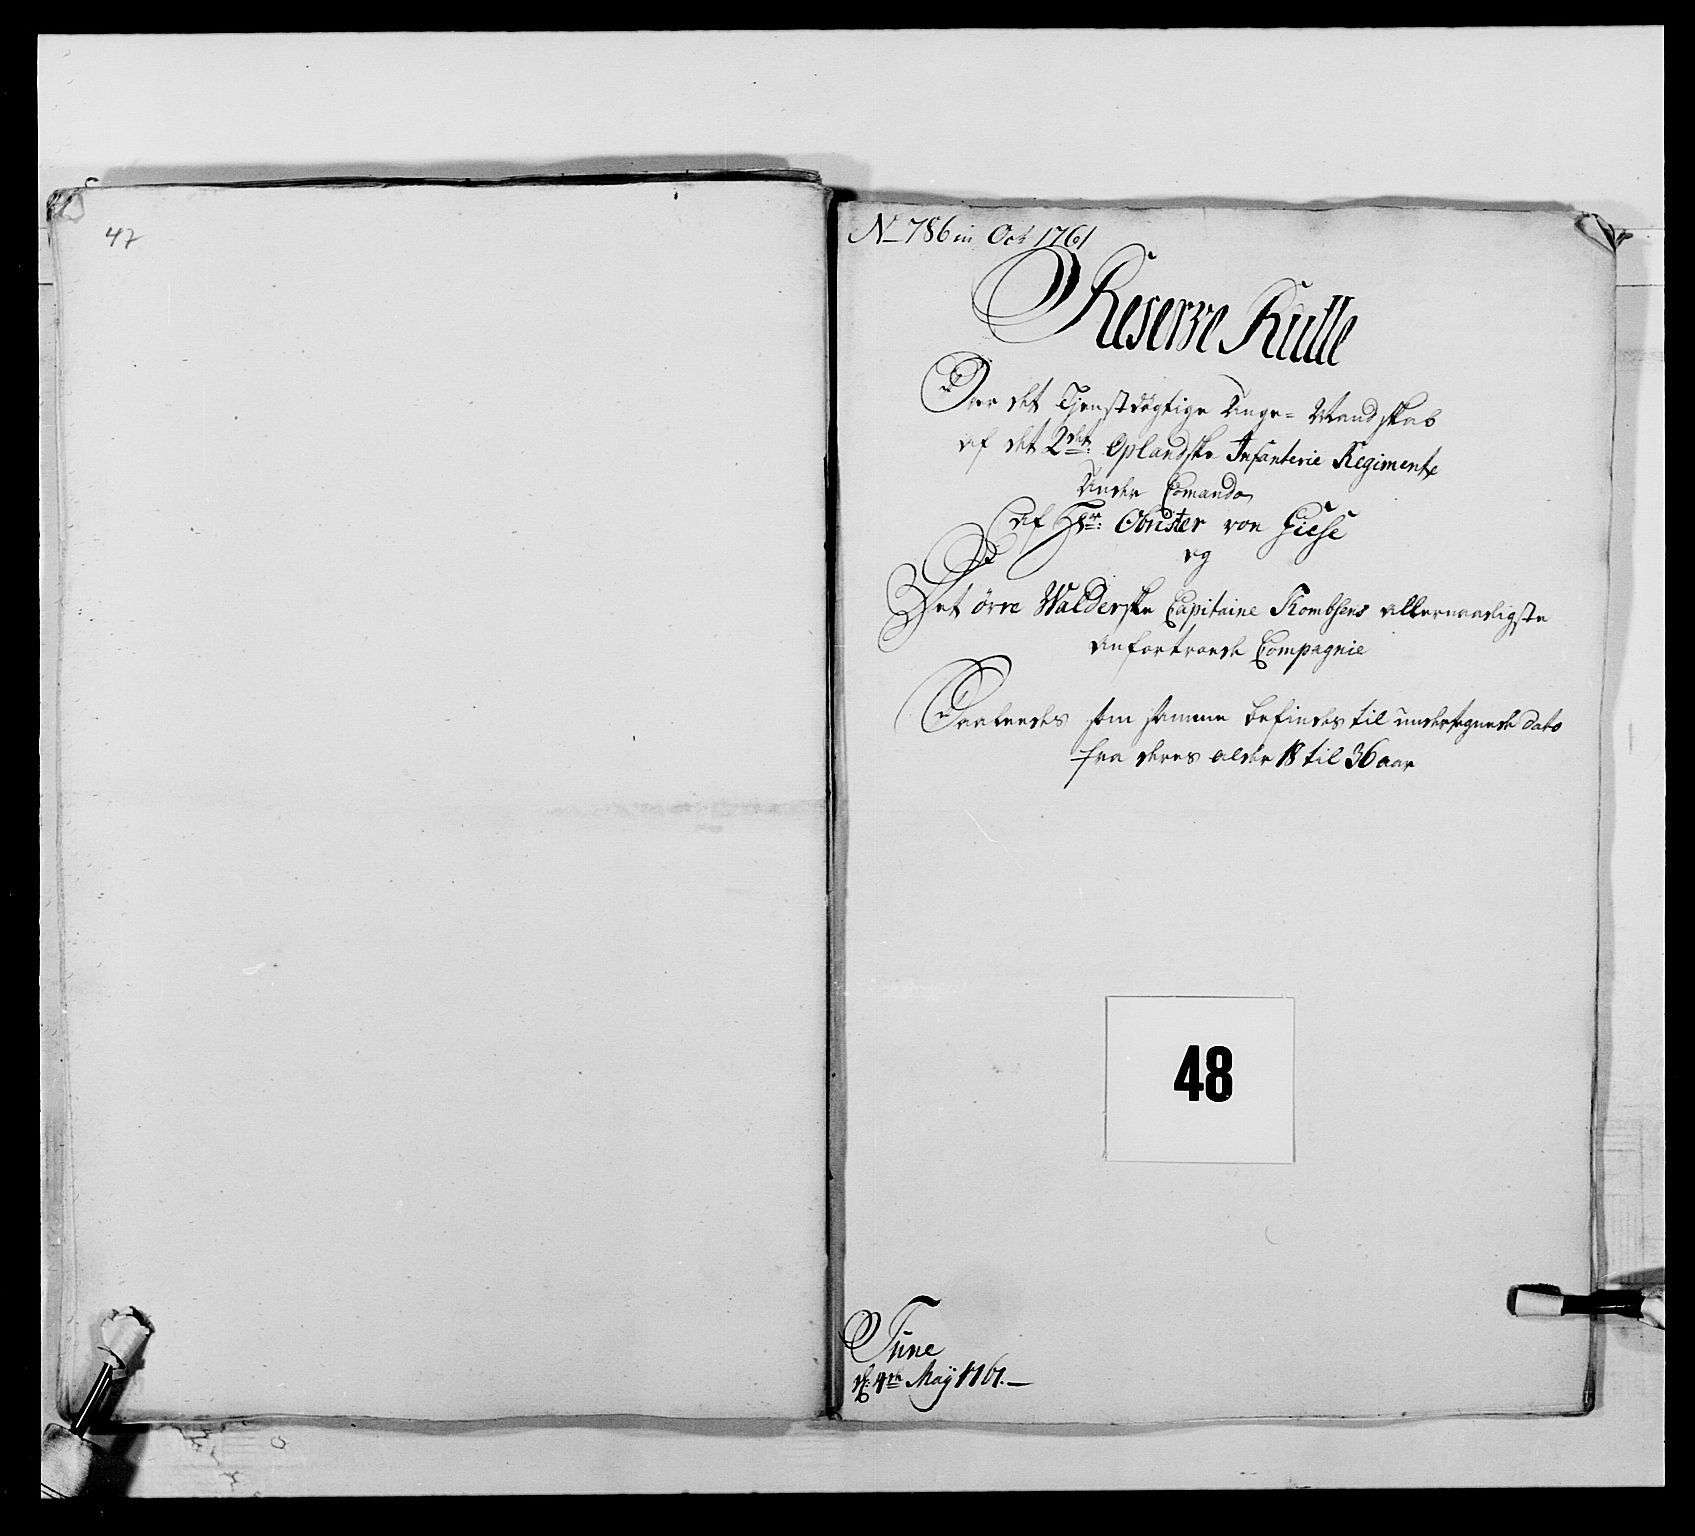 47
No 786 in Oct 1761
Reserve Rulle
Over det Tjenstdögtige Unge= Mandskab
af det 2det: Oplandske Infanterie Regimente
Under Comando
af Hr: Obrister von Giese
og
Det övre Walderske Capitaine allernaadigste
anfortroede Compagnie
Saaledes som samme befindes til undertegnede dato
fra deres alder 18 til 36 aar
48
Tune
d: 4de Maÿ 1761.—